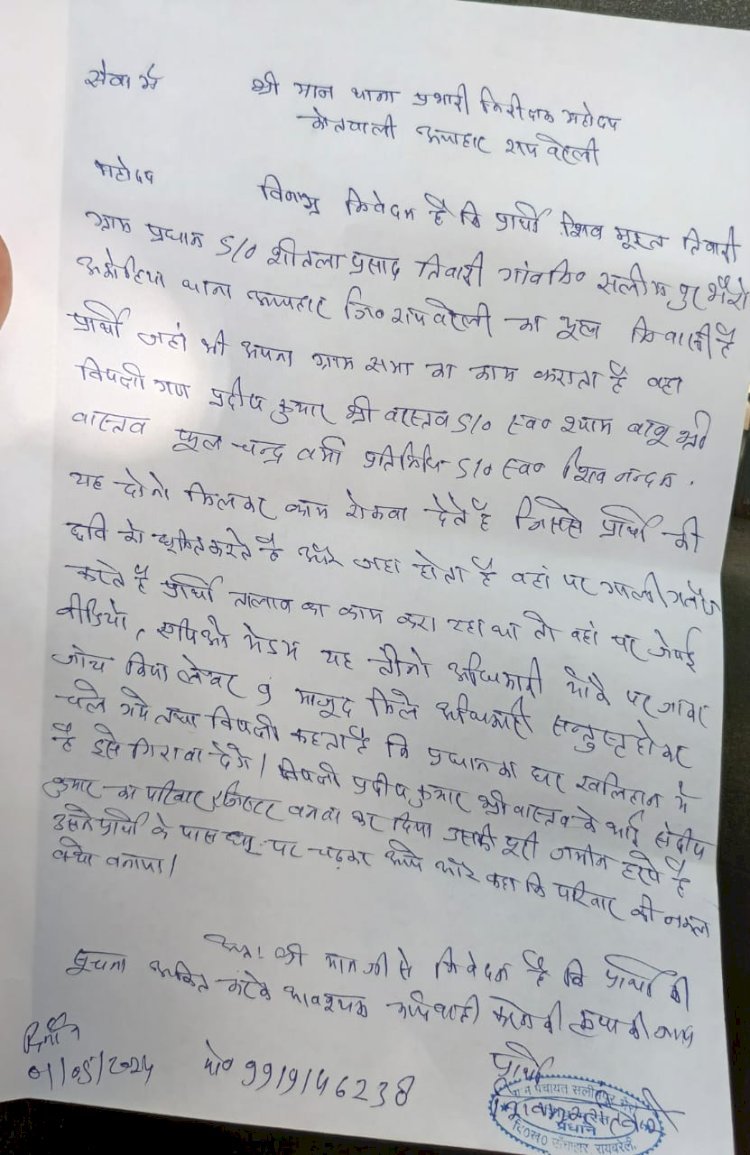 सेवा में
श्री मान थाना प्रभारी निरीक्षक महोदय
कोतवाली ऊंचाहार राय बरेली
महोदय
विनम्र निवेदन है कि प्रार्थी शिव मूरत तिवारी
ग्राम प्रधान S/O शीतला प्रसाद तिवारी गांव नि० सलीमपुर भैरो
थाना ऊंचाहार जि० राय बरेली का मूल निवासी है
प्रार्थी जहां भी अपना ग्राम सभा का काम कराता है वहां
विपक्षी गण प्रदीप कुमार श्री वास्तव S/O स्व० श्याम बाबू श्री
वास्तव फूल चन्द्र वर्मा प्रतिनिधि S/O स्व० शिव नन्दन.
यह दोनो मिलकर काम रोकवा देते है जिससे प्रार्थी की
करते है और जहा होता है वहां पर गाली गलौज
करते है प्रार्थी तालाब का काम करा रहा था तो वहां पर जेई
वीडियो, एपिओ मैडम यह तीनो अधिकारी मौके पर जाकर
जांच किया लेबर 9 माजूद मिले अधिकारी सन्तुस्ट होकर
चले गये तथा विपक्षी कहता है कि प्रधान का घर खलिहान मे
है इसे गिरावा देगे। विपक्षी प्रदीप कुमार श्री वास्तव के भाई संदीप
कुमार का परिवार रजिस्टर बनवा कर दिया उसकी पूरी जमीन हरपे है
उसने प्रार्थी के पास पर चढ़कर आये और कहा कि परिवार की नकल
क्यो बनाया।
अतः श्री मान जी से निवेदन है कि प्रार्थी की
सूचना अंकित करके आवश्यक कार्यवाही करने की कृपा की जाय
दिनाँक
01/05/2024 मो० 9919146238
प्रार्थी
ग्राम पंचायत सलीमपुर भैरो
प्रधान
वि०ख० ऊँचाहार, रायबरेली.